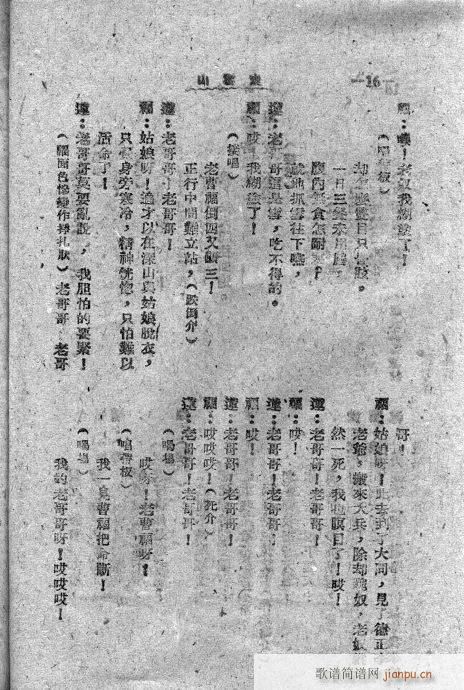 走雪山
—16—
福：噯！老奴我糊塗了！
（唱滾板）
一日三餐未用膳，
腹內無食怎耐寒？
就地抓雪往下嚥，
蓮：老哥哥這是雪，吃不得的。
福：哎！我糊塗了！
（接唱）
老曹福倒四又顛三！
正行中間難立站，（跌倒介）
蓮：老哥哥！老哥哥！
福：姑娘呀！適才以在深山與姑娘脫衣，
只覺身旁寒冷，精神恍惚，只怕難以
活命了！
蓮：老哥哥莫要亂說，我胆怕的要緊！
（福面色慘變作掙扎狀）老哥哥，老哥
哥！
福：姑娘呀！此去到了大同，見了德正
老爺，搬來大兵，除却魏奴，老奴
然一死，我也瞑目了！哎！
蓮：老哥哥！老哥哥！
福：哎！
蓮：老哥哥！老哥哥！
福：哎！
蓮：老哥哥！老哥哥！
福：哎哎哎！（死介）
蓮：老哥哥！老哥哥！
（喝場）
哎呀！老曹福呀！
（唱滾板）
我一見曹福把命斷！
（喝場）
我的老哥哥呀！哎哎哎！
歌谱简谱网 jianpu.cn